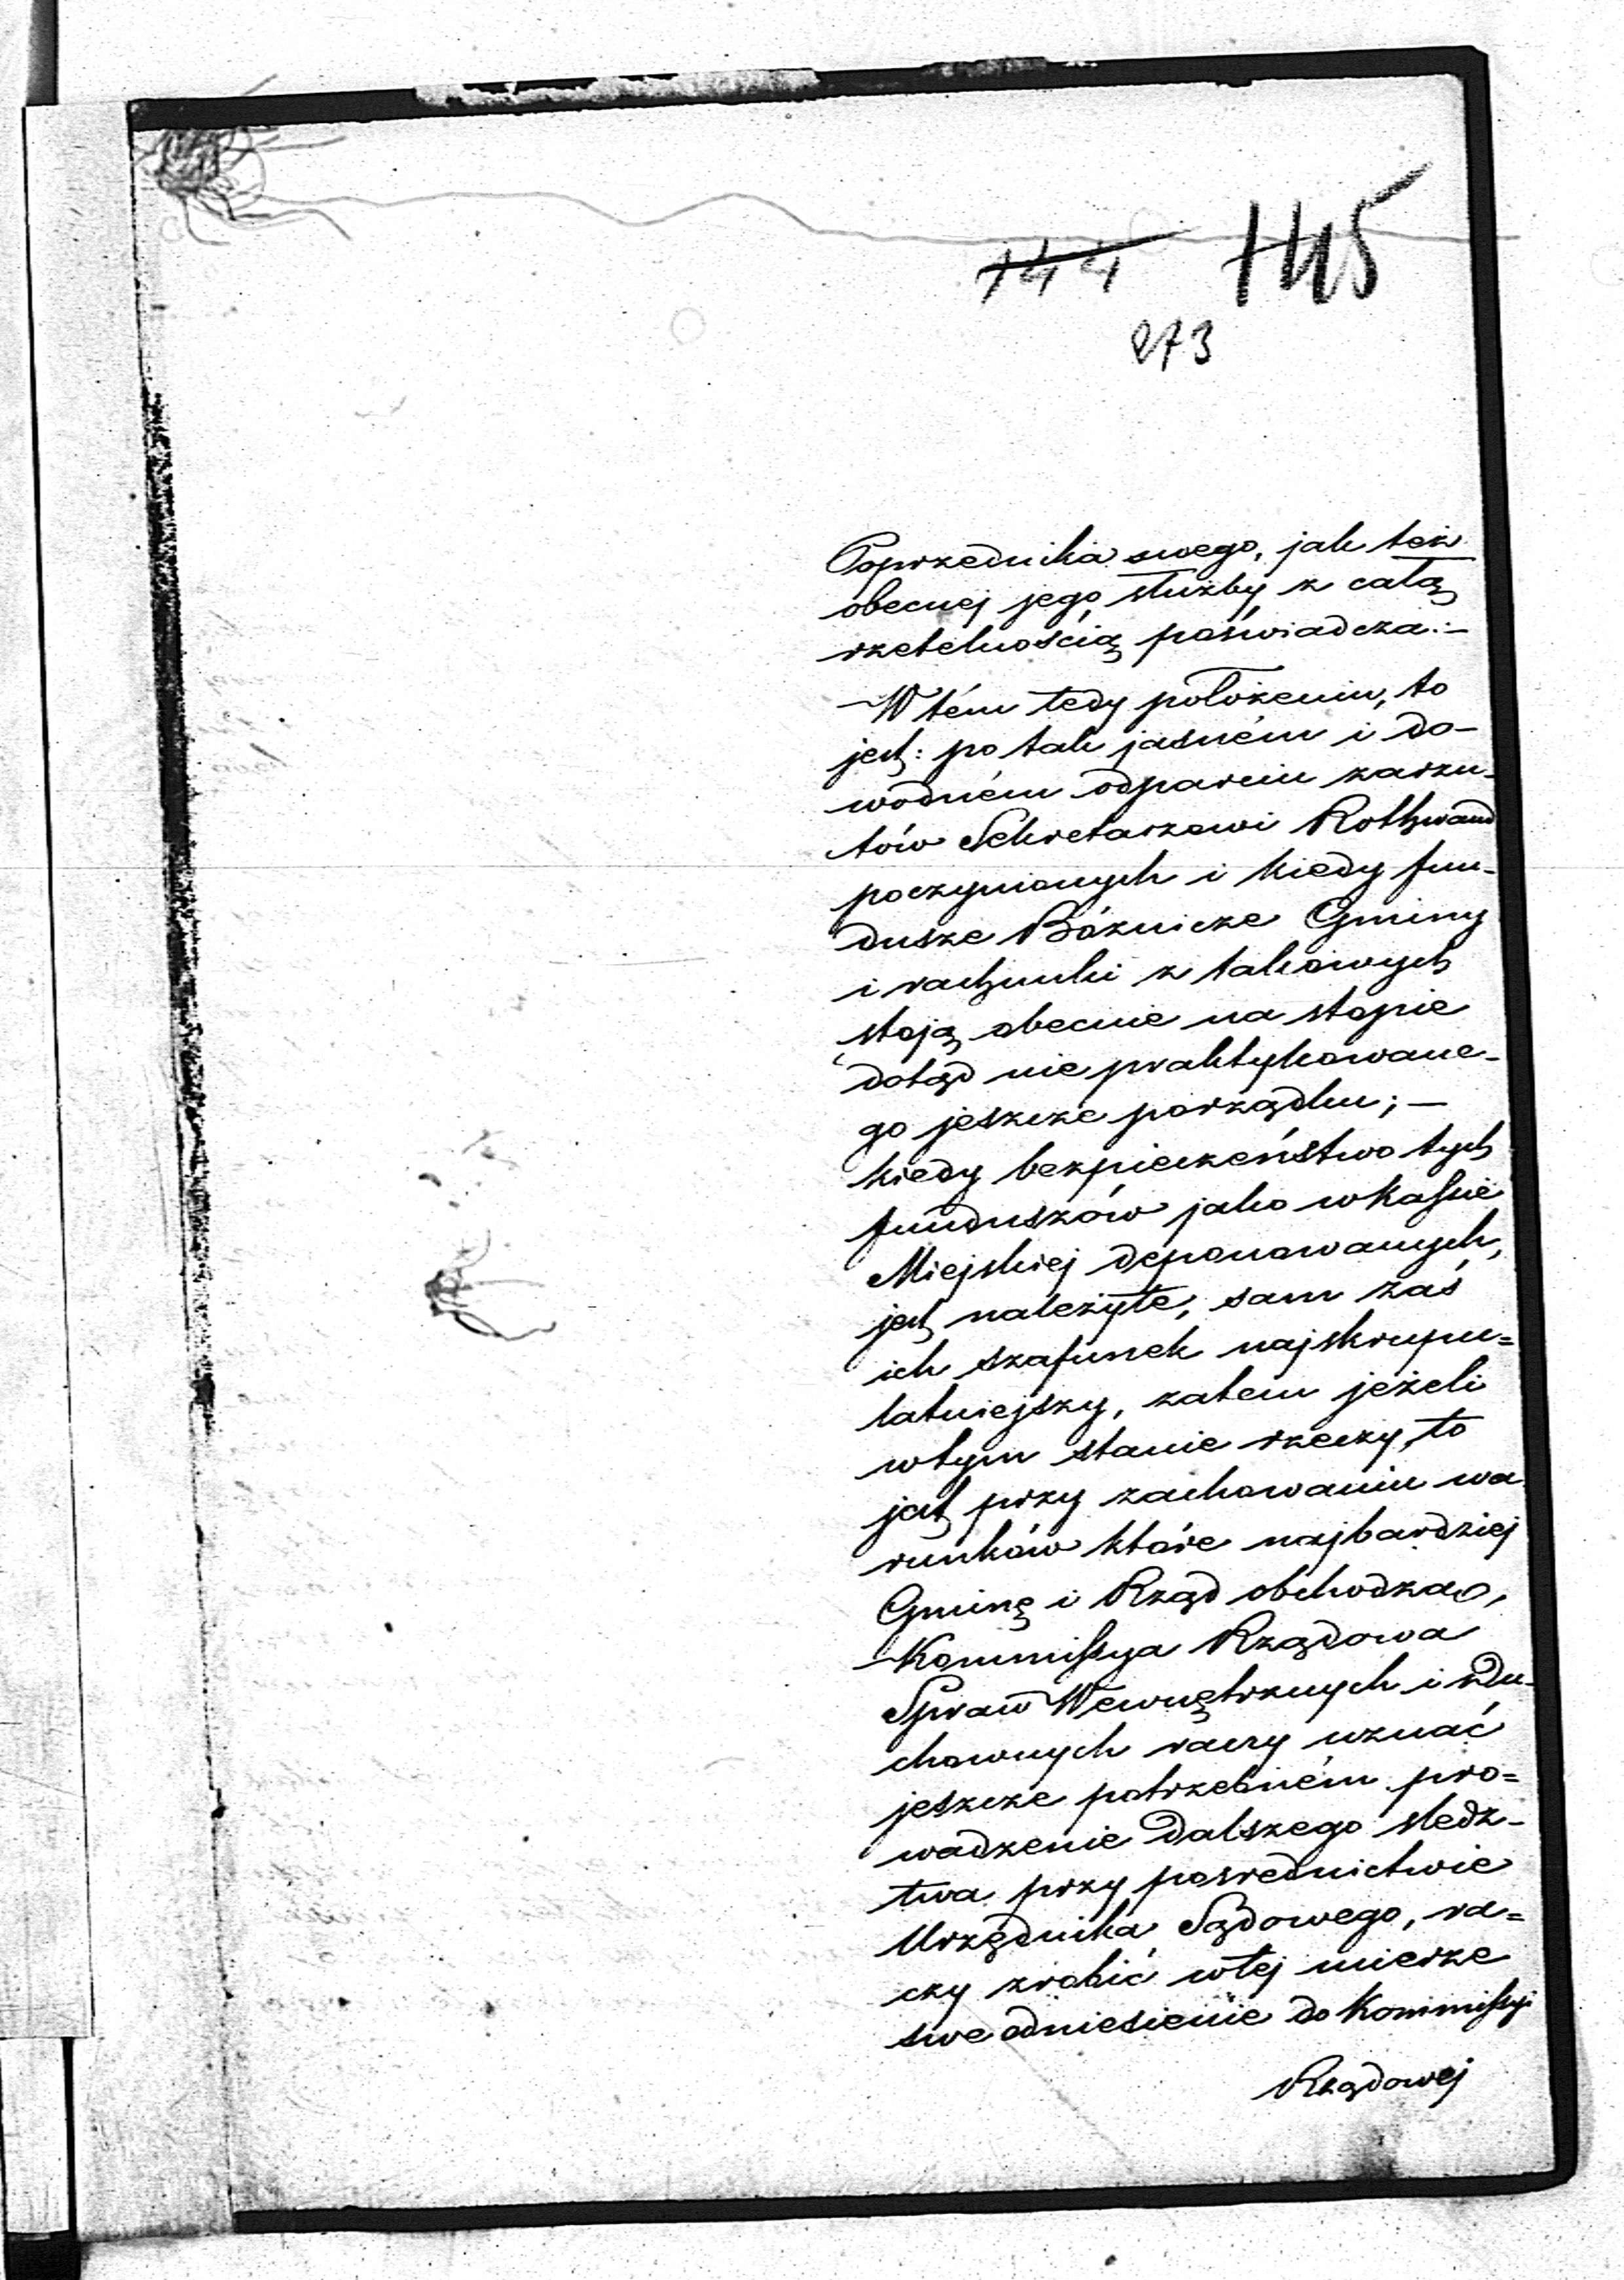 144 145
273
Poprzednika swego, jak też
obecnej jego służby z całą
rzetelnością poświadcza:-
W tém tedy położeniu, to
jest: po tak jasném i do-
wodném odparciu zarzu-
tów Sekretarzowi Rothwand
poczynionych i kiedy fun-
dusze Bóżnicze Gminy
i rachunki z takowych
stoją obecnie na stopie
dotąd nie praktykowane-
go jeszcze porządku; —
kiedy bezpieczeństwo tych
funduszów jako w Kassie
Miejskiej deponowanych,
jest należyte, sam zaś
ich szafunek najskrupu=
latniejszy, zatem jeżeli
w tym stanie rzeczy, to
jest przy zachowaniu wa
runków które najbardziej
Gminę i Rząd obchodzą,
Kommissya Rządowa
Spraw Wewnętrznych i Du-
chownych raczy uznać
jeszcze potrzebném pro=
wadzenie dalszego śledz-
twa przy pośrednictwie
Urzędnika Sądowego, ra=
czy zrobić w tej mierze
swe odniesienie do Kommissyi
Rządowej